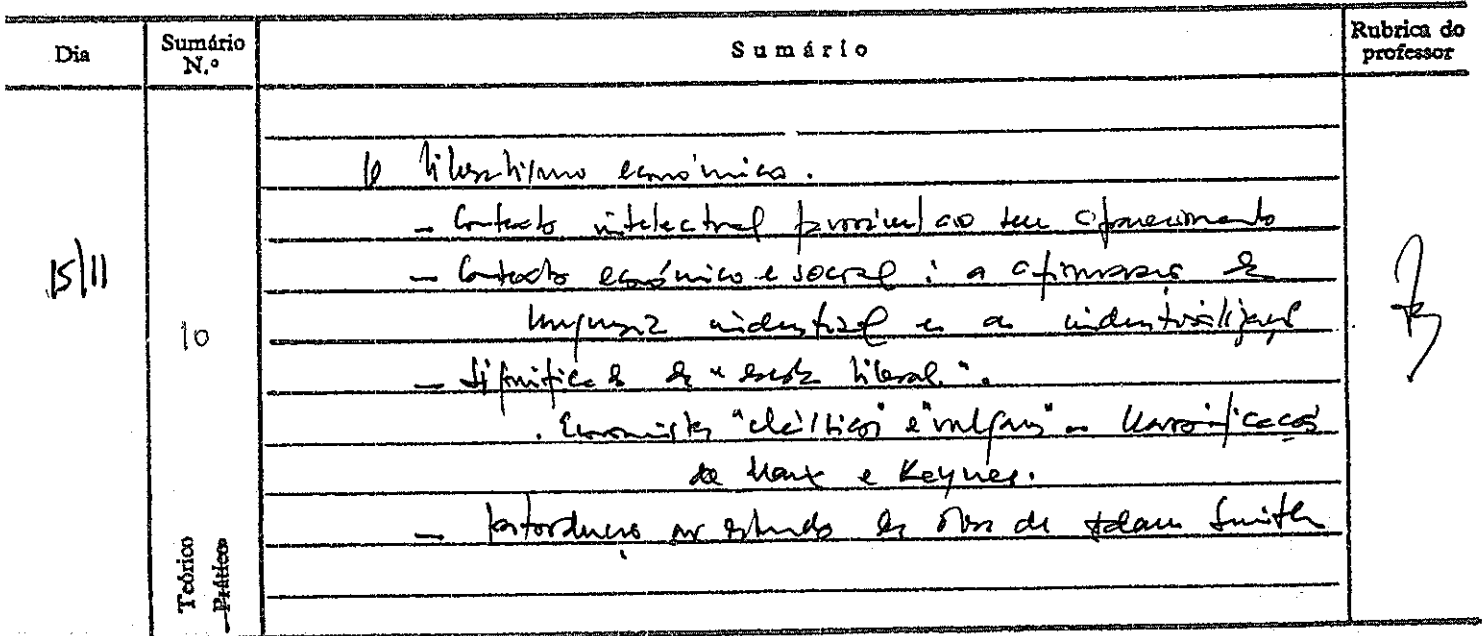 Dia
Sumário N.º
Sumário
Rubrica do professor
15/11
10
Teórico
Prático
O liberalismo económico.
- Contexto intelectual ao seu aparecimento
- Contexto económico e social: a afirmação da
burguesia industrial e a industrialização
- Significado de "escola liberal".
. Economistas "clássicos" e "vulgares" - classificações
de Marx e Keynes.
- Introdução ao estudo da obra de Adam Smith